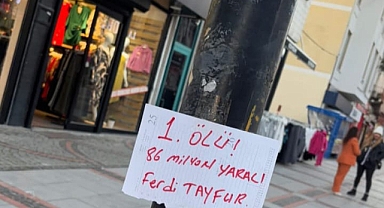 1. ÖLÜ!
86 milyon YARALI
Ferdi TAYFUR